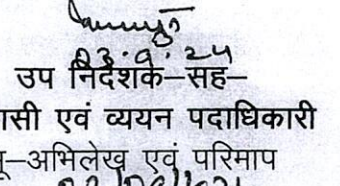 03.9.24
उप निदेशक–सह–
ासी एवं व्ययन पदाधिकारी
–अभिलेख एवं परिमाप